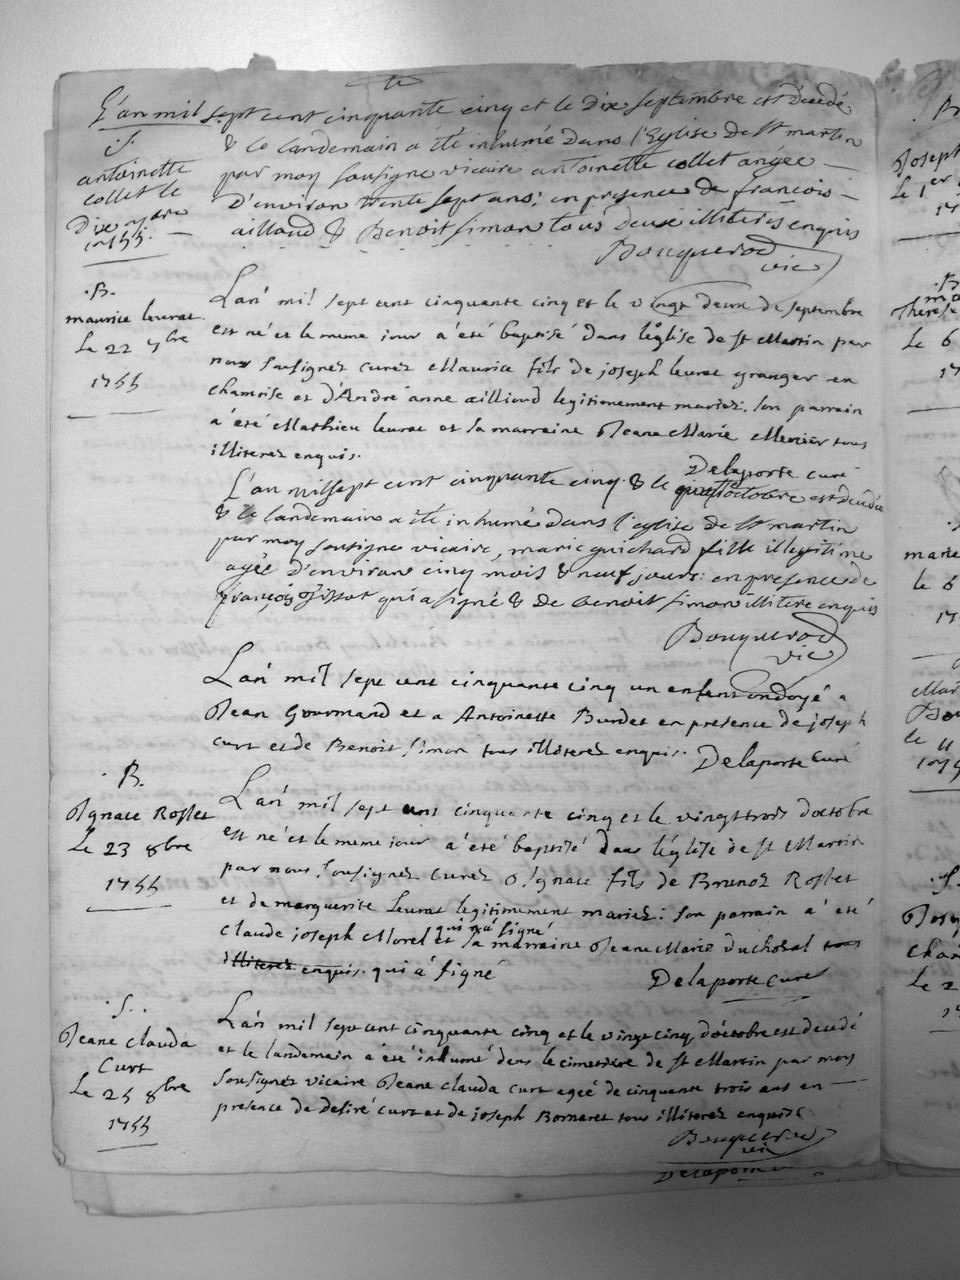 L'an mil sept cent cinquante cinq et le dix septembre est décédé
S.
antoinette
collet le
Dix 7bre
1755.
& le landemain a été inhumé dans l'Eglise de St martin
par moy sousigne vicaire antoinette collet angée
D'environ trente sept ans; en presence de francois
aillaud & Benoit simon tous deux illiterés enquis
Bouquerod
vic
B.
maurice leurat
Le 22 7bre
1755
L'an mil sept cent cinquante cinq et le vingt deux de septembre
est né et le meme jour a été baptisé dans l'église de St Martin par
nous sousignez curez Maurice fils de joseph leurat granger en
et d'André anne ailliaud legitimement mariez; son parrain
a été Mathieu leurat et la marraine Jeane Marie Mercier tous
illiterez enquis.
Delaporte curé
L'an mil sept cent cinquante cinq & le octobre est decedée
& le landemain a été inhumé dans l'eglise de St martin
par moy sousigne vicaire, marie guichard fille illegitime
agée d'environ cinq mois & neuf jours: en presence de
françois qui a signé & de benoit simon illitere enquis
Bouquerod
vic
L'an mil sept cent cinquante cinq un enfent ondoyé a
Jean Gourmand et a Antoinette Burdet en presence de joseph
curt et de Benoit simon tous illiterez enquis. Delaporte curé
B.
Ignace Roslet
Le 23 8bre
1755
L'an mil sept cent cinquante cinq et le vingt trois d'octobre
est né et le meme jour a été baptisé dans l'église de St Martin
par nous sousignez curez Ignace fils de Brunoz Roslet
et de marguerite leurat legitimement mariez: son parrain a été
claude joseph Morel qui n'a signé et sa marraine Jeane Marie Ducholal tous
illiterez enquis. qui a signé
Delaporte curé
S.
Jeane clauda
Curt
Le 25 8bre
1755
L'an mil sept cent cinquante cinq et le vingt cinq d'octobre est decedé
et le landemain a été inhumé dens le cimetière de St Martin par moy
sousignez vicaire Jeane clauda curt ageé de cinquante trois ans en
presence de desiré curt et de joseph Bornaret tous illiterez enquis
Bouquerod
vic
Delaporte